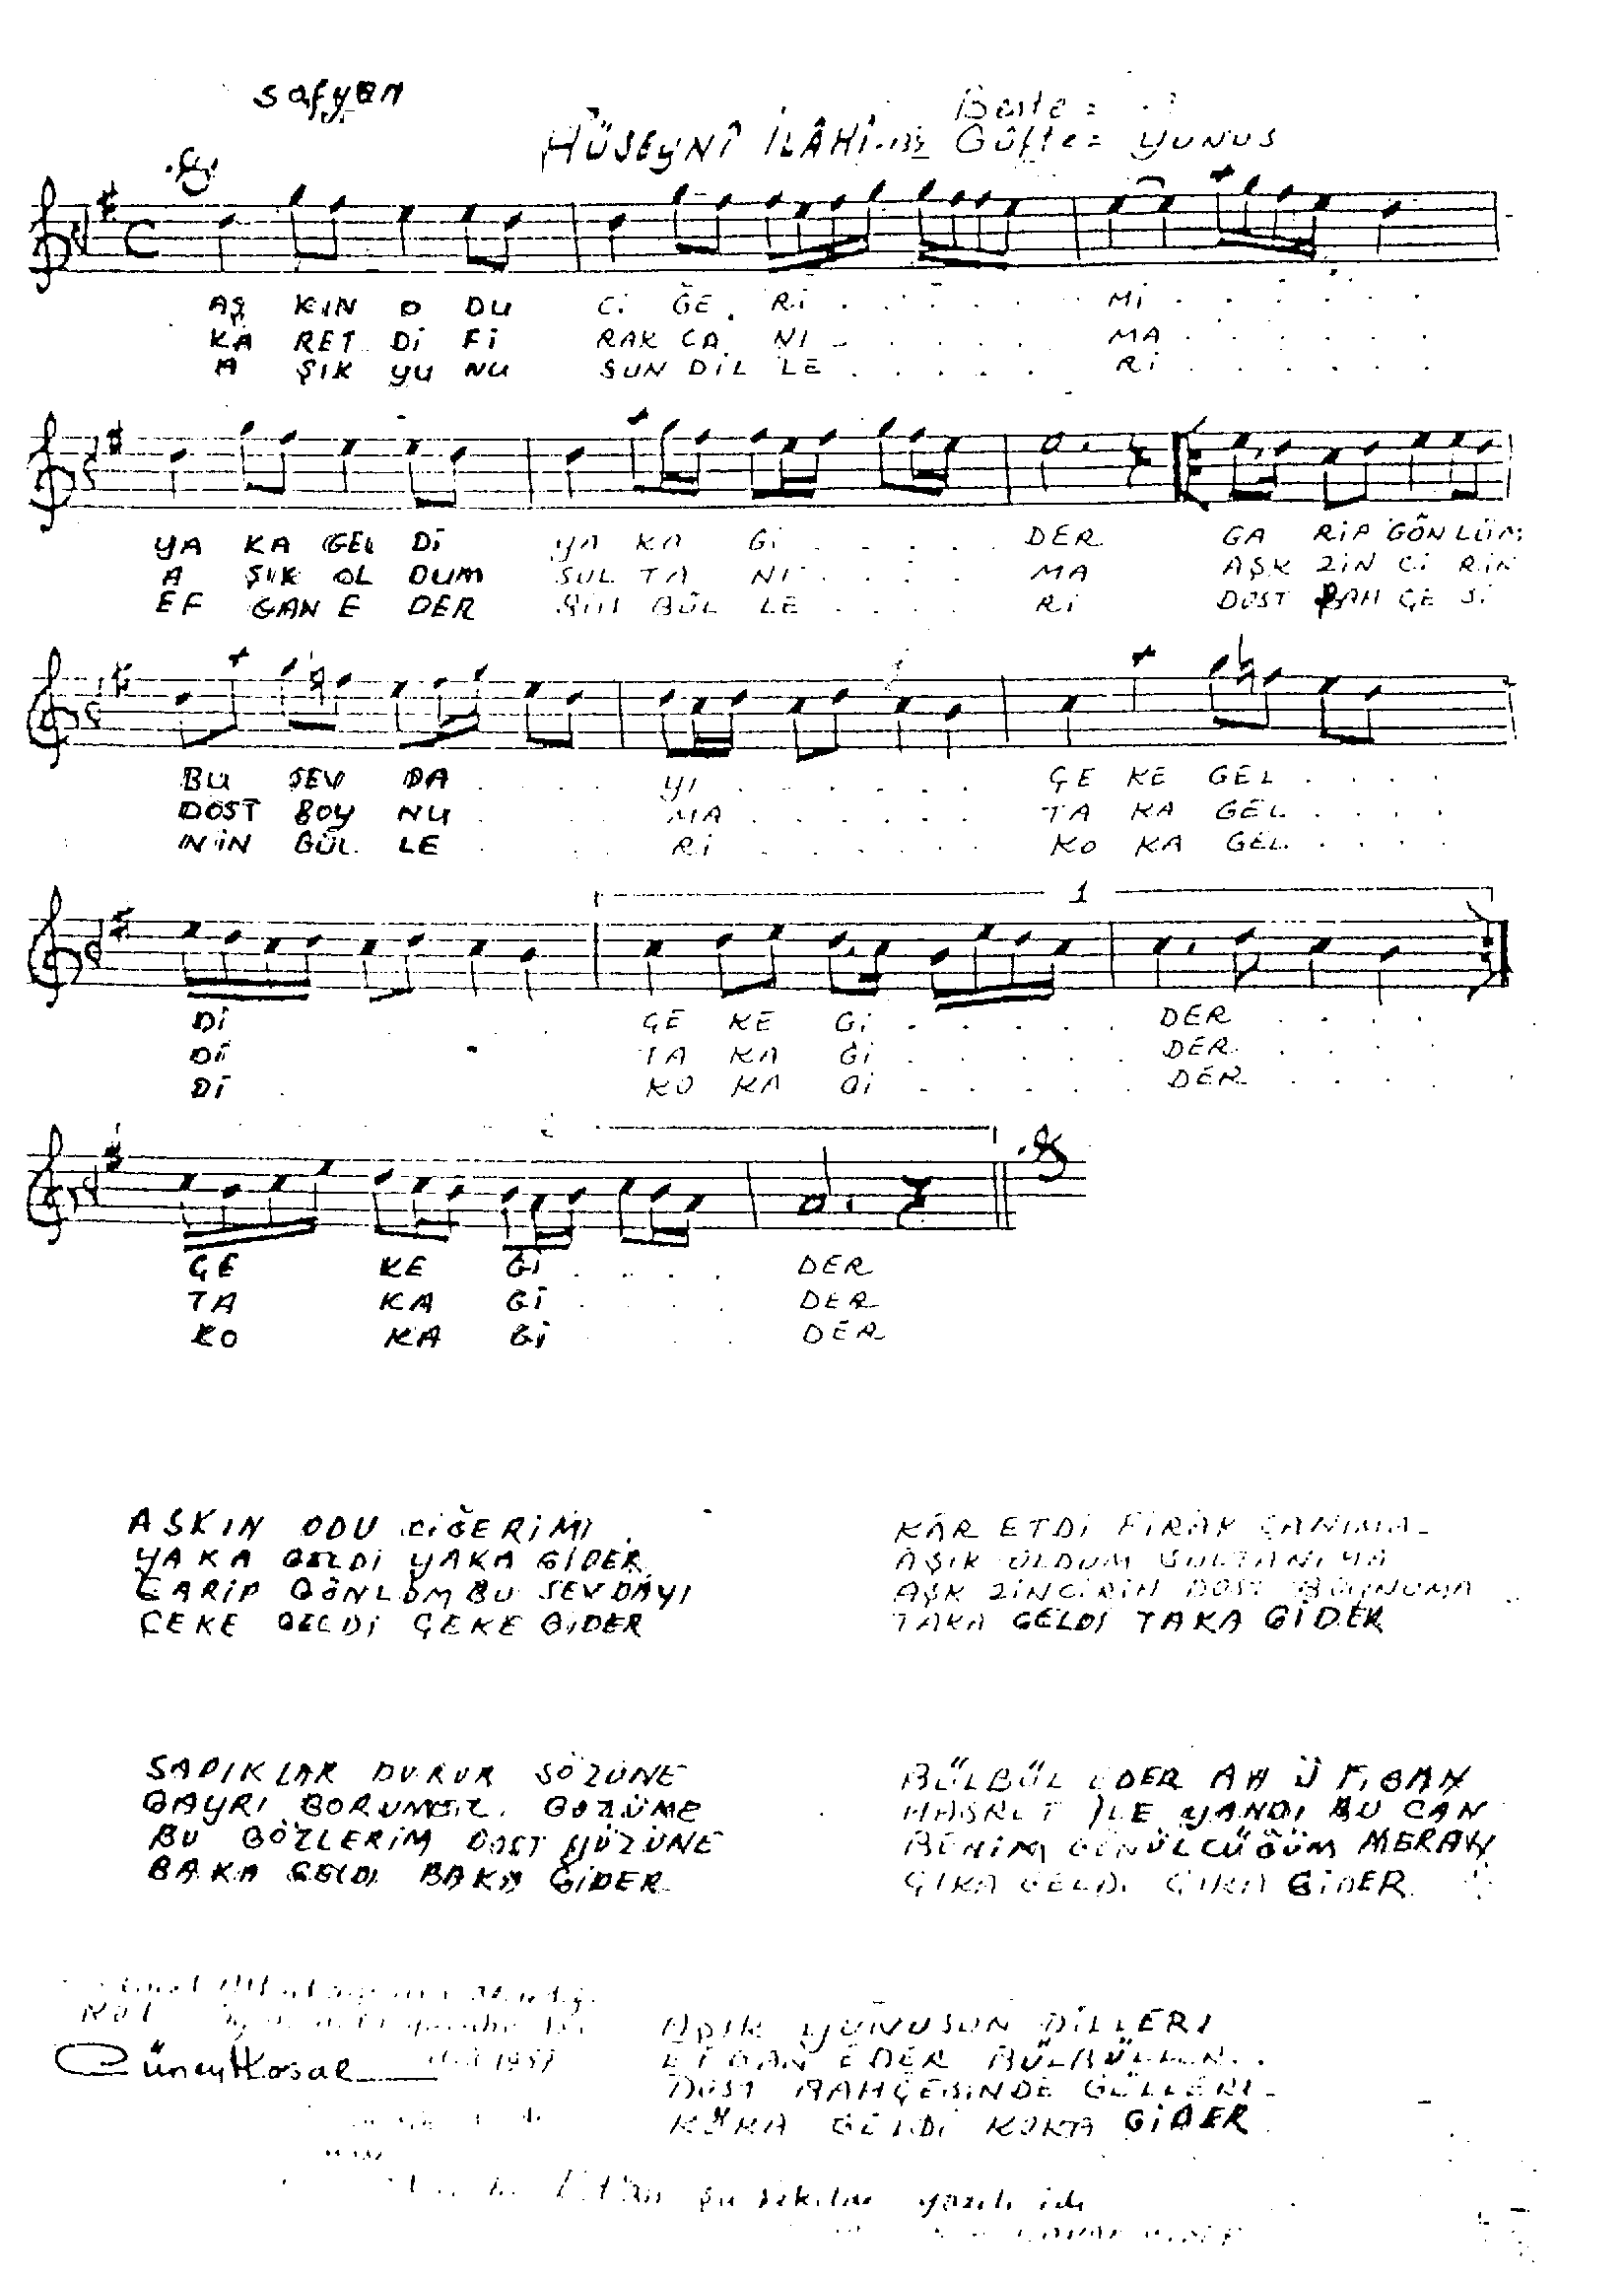 Sofyan
Beste = . ?
HÜSEYNÎ İLÂHİ Güfte = YUNUS
AŞ KIN O DU Cİ ĞE Rİ . . . . . . Mİ . . . . . .
KA RET Dİ Fİ RAK CA NI . . . . . . MA . . . . . .
A ŞIK YU NU SUN DİL LE . . . . . Rİ . . . . . .
YA KA GEL Dİ YA KA Gİ . . . . DER GA RİP GÖN LÜM
A ŞIK OL DUM SUL TA NI . . . . MA AŞK ZİN Cİ RİN
EF GAN E DER BÜL LE . . . . Rİ DOST BAH ÇE Sİ
BU SEV DA . . . YI . . . . . . ÇE KE GEL . . . .
DOST BOY NU . . . MA . . . . . . TA KA GEL . . . .
NİN GÜL LE . . . Rİ . . . . . . KO KA GEL . . . .
1
Dİ ÇE KE Gİ . . . . . DER . . . .
Dİ TA KA Gİ . . . . . DER . . . .
Dİ KO KA Gİ . . . . . DER . . . .
ÇE KE Gİ . . . . DER
TA KA Gİ . . . . DER
KO KA Gİ . . . DER
AŞKIN ODU CİĞERİMİ
YAKA GELDİ YAKA GİDER
GARİP GÖNLÜM BU SEVDAYI
ÇEKE GELDİ ÇEKE GİDER
KÂR ETDİ FİRAK CANIMA
AŞIK OLDUM SULTANIMA
AŞK ZİNCİRİN DOST BOYNUMA
TAKA GELDİ TAKA GİDER
SADIKLAR DURUR SÖZÜNE
GAYRI GÖRÜNMEZ GÖZÜME
BU GÖZLERİM DOST YÜZÜNE
BAKA GELDİ BAKA GİDER
BÜLBÜL EDER AH Ü FİGAN
HASRET İLE YANDI BU CAN
BENİM GÖNÜLCÜĞÜM
ÇIKA GELDİ ÇIKA GİDER
AŞIK YUNUSUN DİLLERİ
EFGAN EDER BÜLBÜLLERİ
DOST BAHÇESİNDE GÜLLERİ
KOKA GELDİ KOKA GİDER
Cüneyt Kosal
şu şekilde yazılı idi